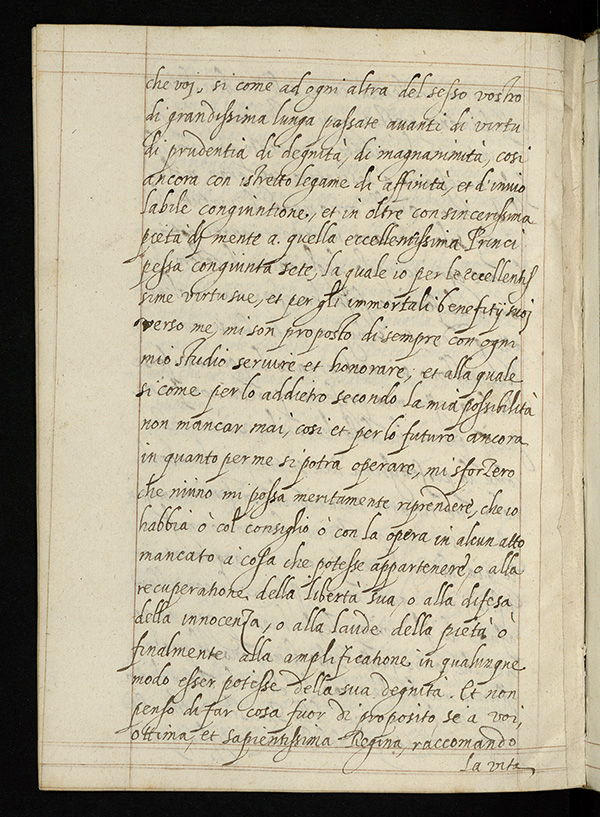 che voi, si come ad ogni altra del sesso vostro
di grandissima lunga passate auanti di virtu
di prudentia di degnità, di magnanimità, cosi
ancora con istretto legame di affinità, et d'inuio
labile congiuntione, et in oltre con sincerissima
pietà di mente a quella eccellentissima Princi
pessa congiunta sete, la quale io per le eccellentis
sime virtu sue, et per gli immortali benefitij suoi
verso me, mi son proposto di sempre con ogni
mio studio seruire et honorare; et alla quale
si come per lo addietro secondo la mia possibilità
non mancar mai, cosi et per lo futuro ancora
in quanto per me si potra operare, mi sforzero
che niuno mi possa meritamente riprendere, che io
habbia ò col consiglio ò con la opera in alcun atto
mancato a cosa che potesse appartenere, o alla
recuperatione della libertà sua, o alla difesa
della innocenza, o alla laude della pietà ò
finalmente alla amplificatione in qualunque
modo esser potesse della sua degnità. Et non
penso di far cosa fuor di proposito se a voi,
ottima, et sapientissima Regina, raccomando
la vita